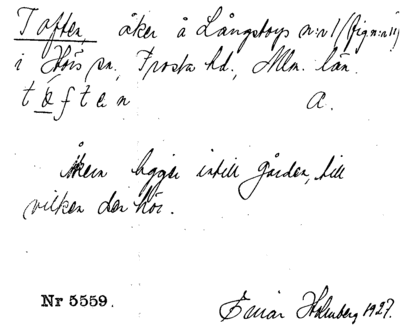 Toften, åker å Långstorps n:r 1 (fig. n:r 11)
i Hörs sn., Frosta hd., Mlm. län.
A.
Åkern ligger intill gården, till
vilken den hör.
Nr 5559.
Einar Holmberg 1927.